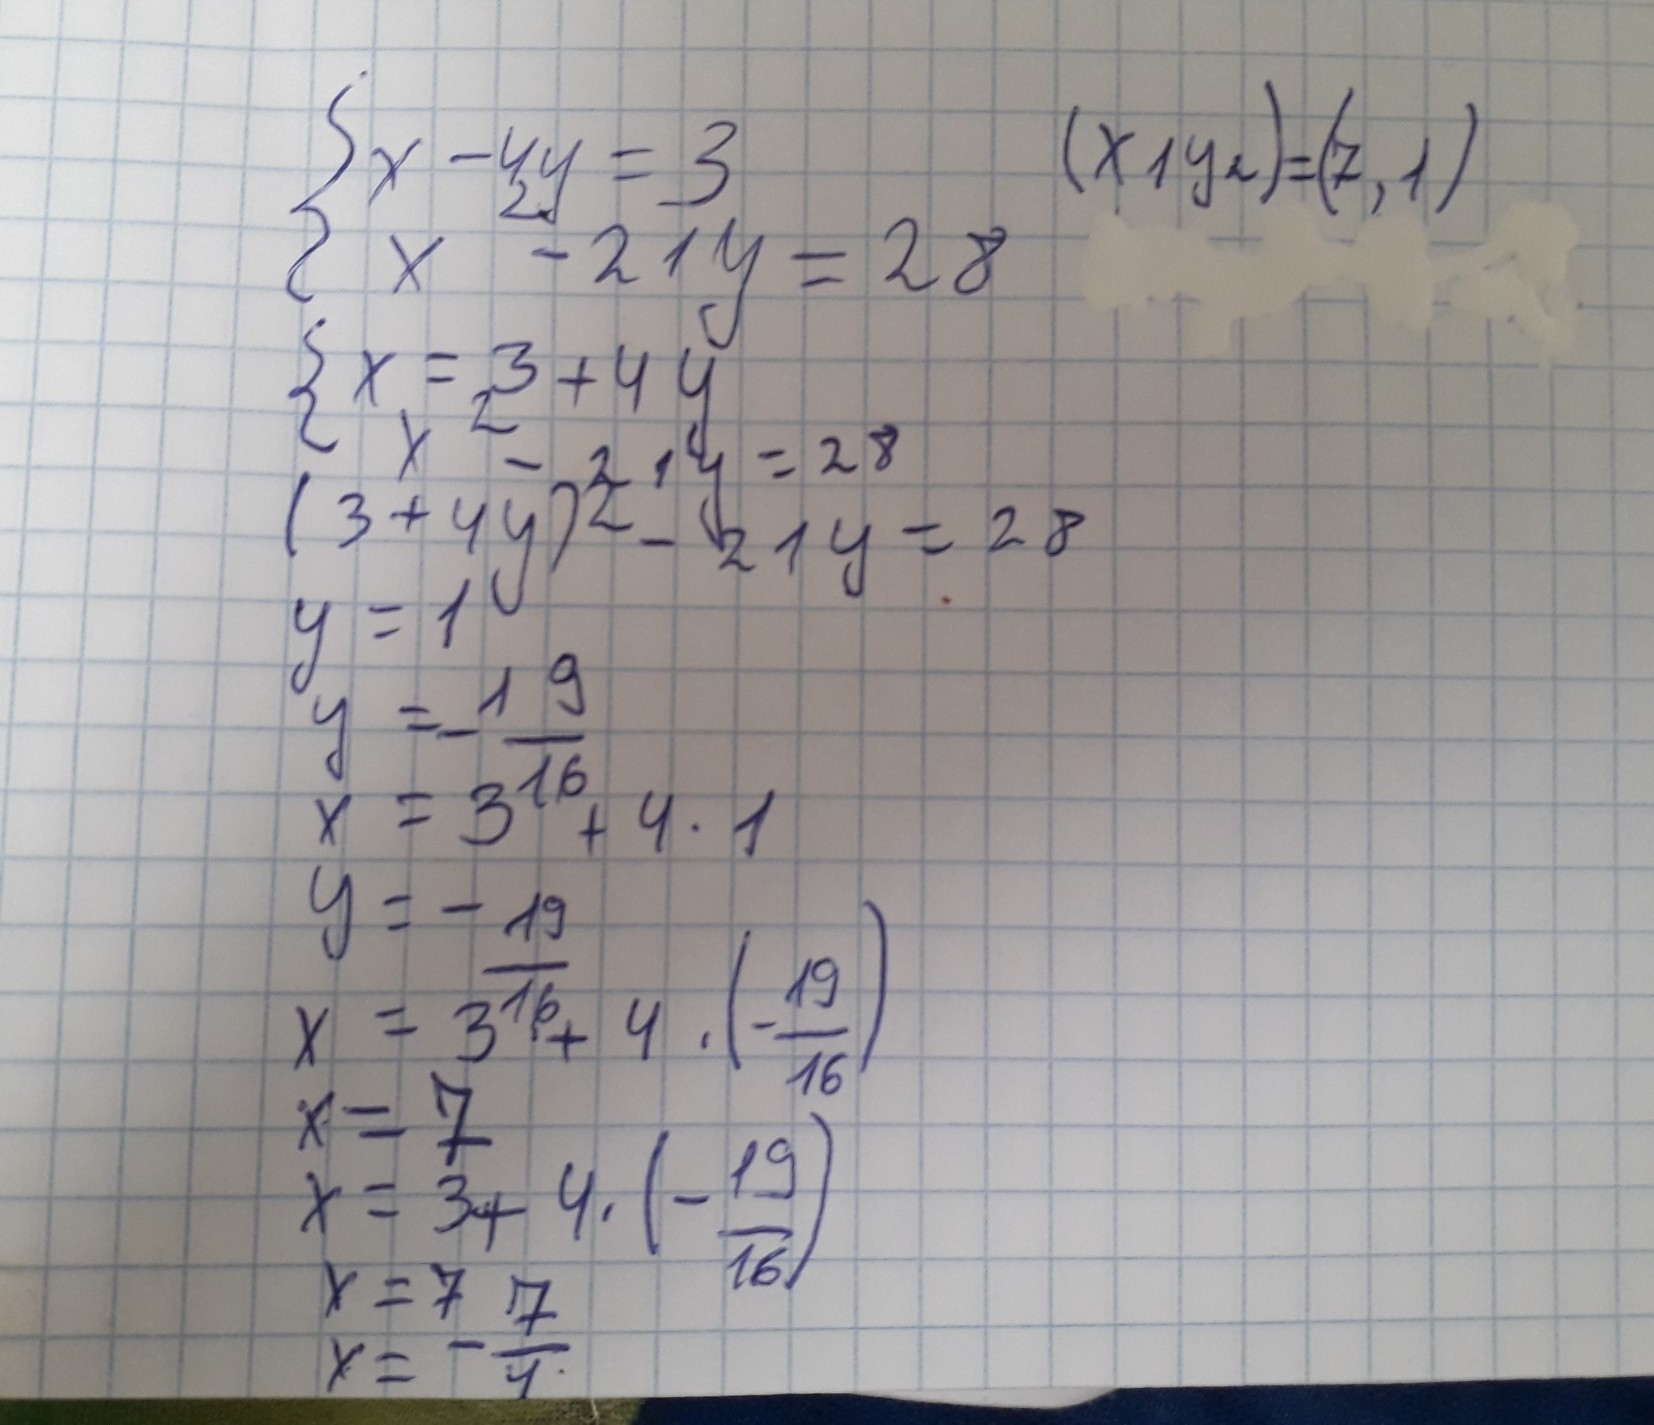 x - 4y = 3
x² - 21y = 28
(x1y2) = (7, 1)
x = 3 + 4y
x² - 21y = 28
(3 + 4y)² - 21y = 28
y = 1
y = - 19/16
x = 3 + 4 · 1
y = - 19/16
x = 3 + 4 · (- 19/16)
x = 7
x = 3 + 4 · (- 19/16)
x = 7
x = - 7/4